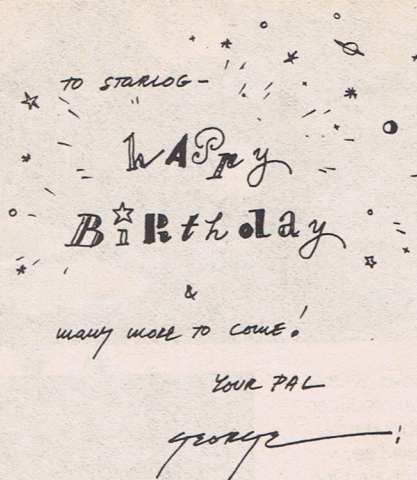 TO STARLOG—
HAPPY
BiRthday
&
many more TO COME!
YOUR PAL
GEORGE